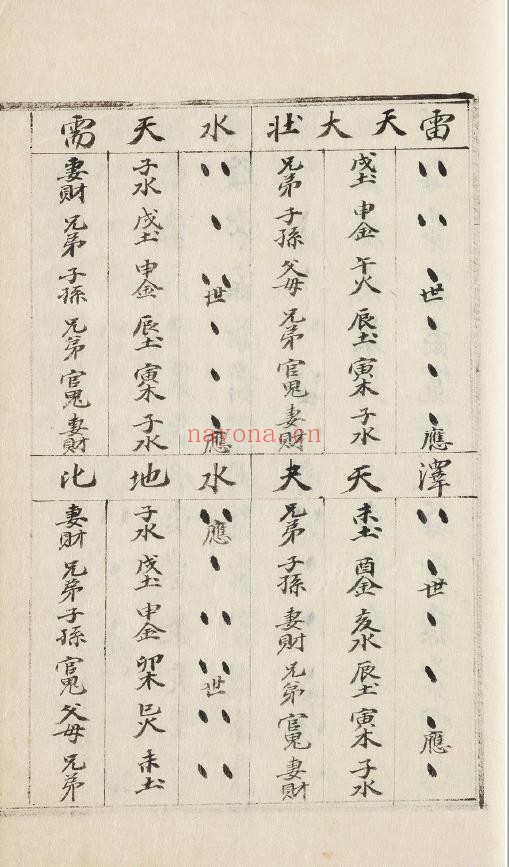 雷天大壯
世 應
戌土 申金 午火 辰土 寅木 子水
兄弟 子孫 父母 兄弟 官鬼 妻財
水天需
世 應
子水 戌土 申金 辰土 寅木 子水
妻財 兄弟 子孫 兄弟 官鬼 妻財
澤天夬
世 應
未土 酉金 亥水 辰土 寅木 子水
兄弟 子孫 妻財 兄弟 官鬼 妻財
水地比
應 世
子水 戌土 申金 卯木 巳火 未土
妻財 兄弟 子孫 官鬼 父母 兄弟
nayona.cn